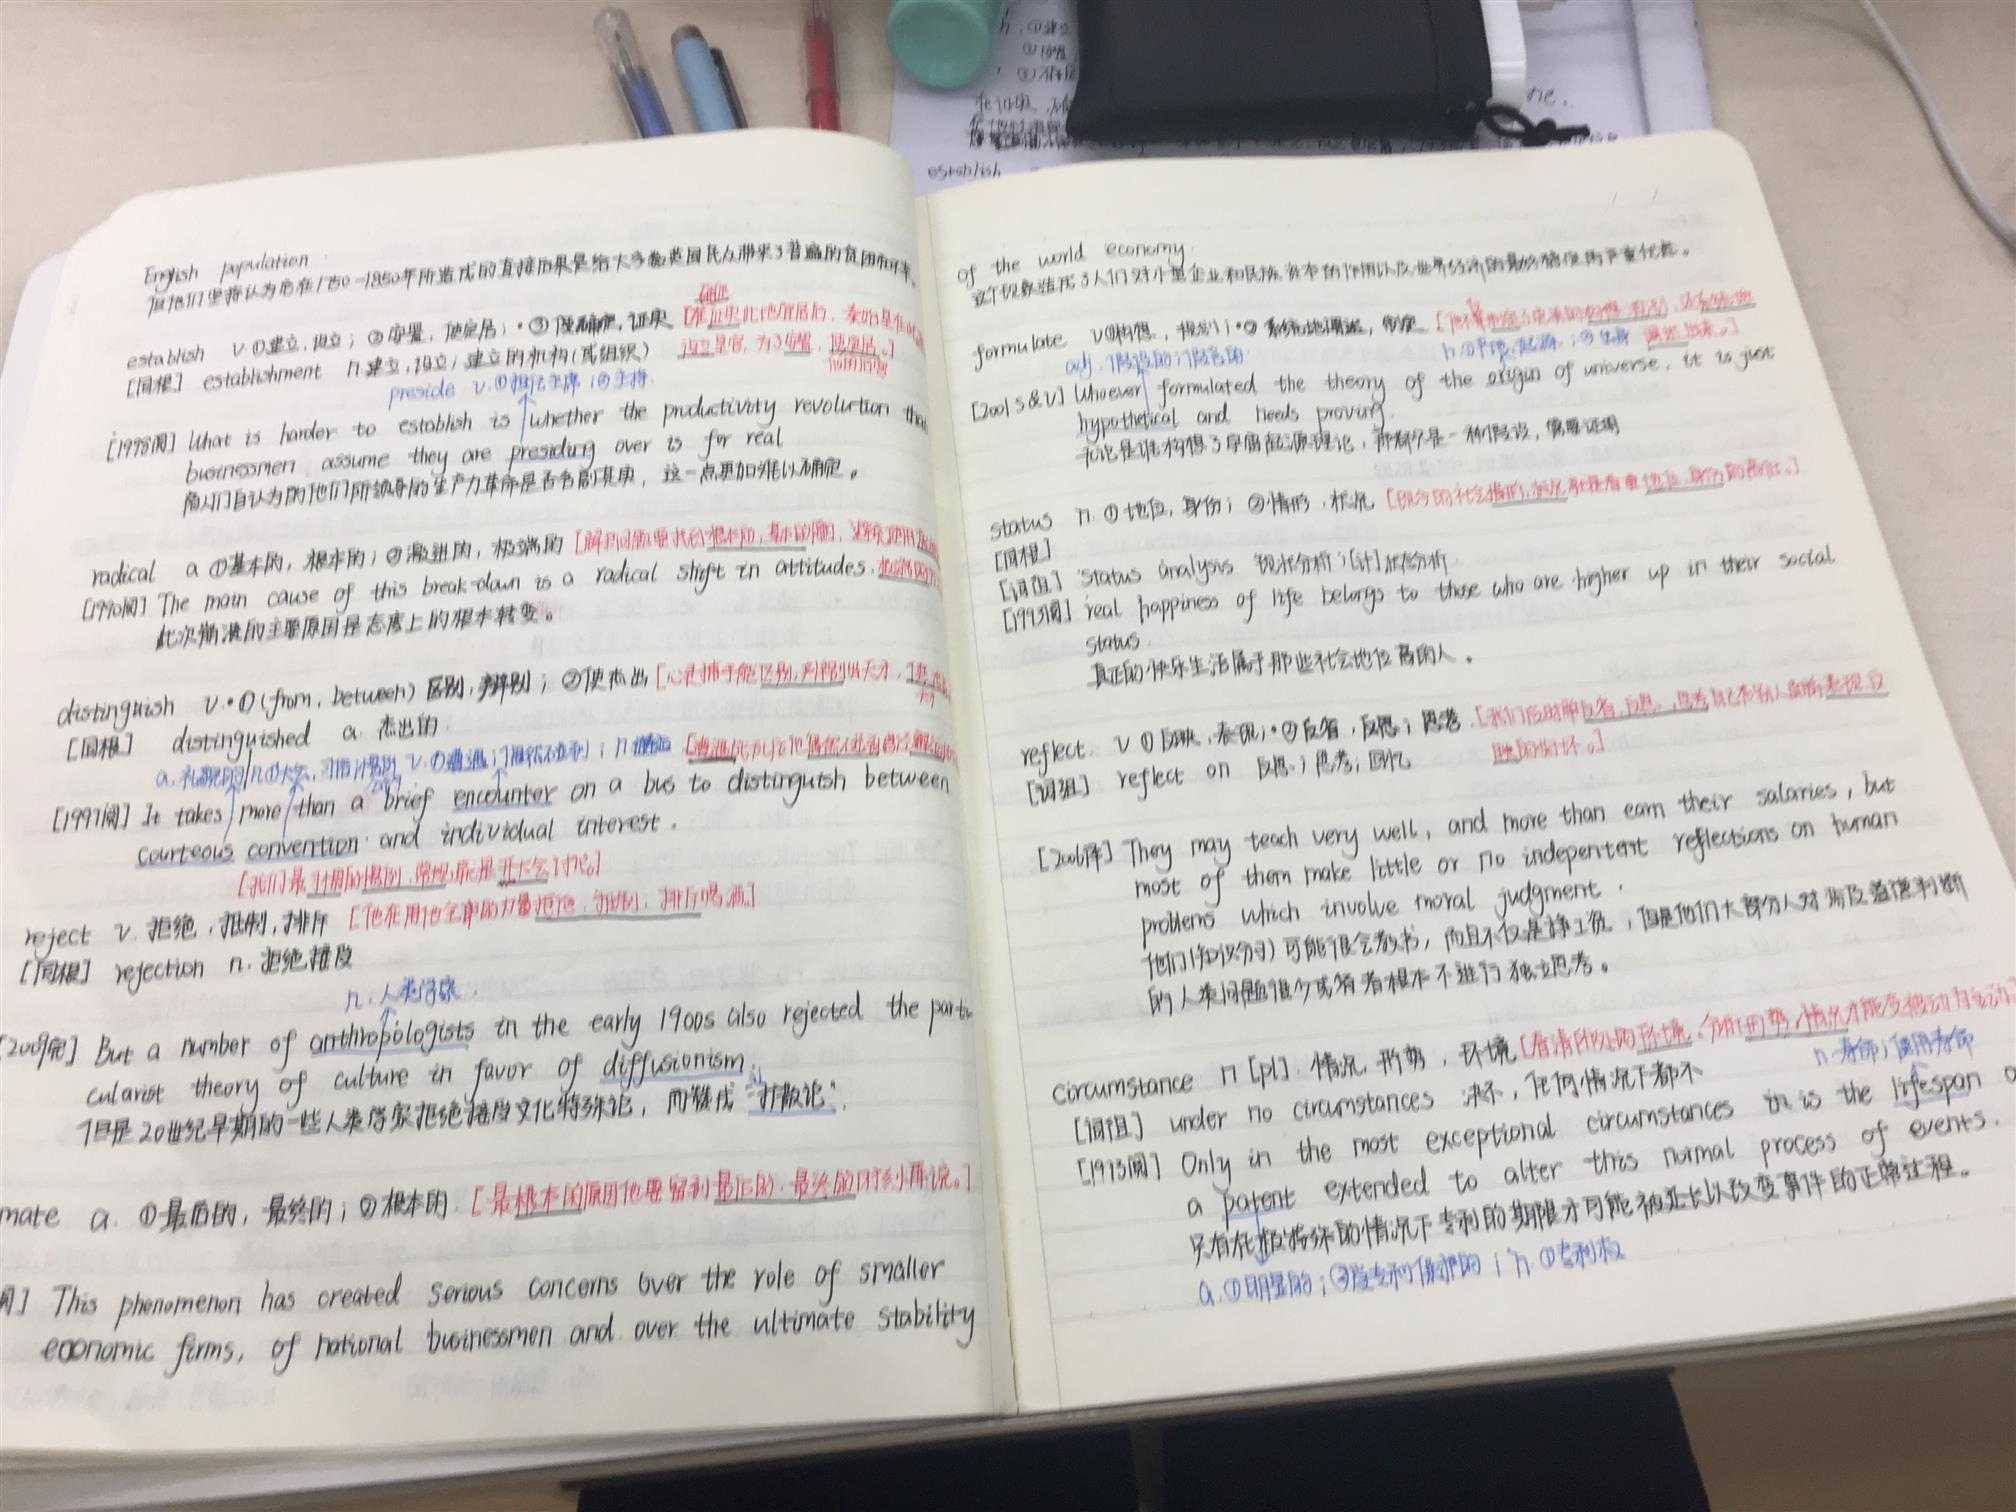 English population.
但他们坚持认为它在1750-1850年所造成的直接后果是给大多数英国民众带来了普遍的贫困和
establish v ①建立,设立; ②安置,使定居; ·③使确定,证实
[同根] establishment n.建立,设立; 建立的机构(或组织)
preside v. ①担任主席; ②主持.
[1998阅] What is harder to establish is whether the productivity revolurtion that
businessmen assume they are presiding over is for real
商人们自认为的他们所领导的生产力革命是否名副其实, 这一点更加难以确定。
radical a ①基本的, 根本的; ②激进的, 极端的
[1990阅] The main cause of this break-down is a radical shift in attitudes.
此次崩溃的主要原因是态度上的根本转变。
distinguish v·①(from, between) 区别, 辨别; ②使杰出
[同根] distinguished a. 杰出的
[1997阅] It takes more than a brief encounter on a bus to distinguish between
courteous convention and individual interest.
reject v. 拒绝, 抵制, 排斥 [他在用他全部的力量拒绝, 抵制, 排斥喝酒。]
[同根] rejection n. 拒绝接受
n. 人类学家.
[2009完] But a number of anthropologists in the early 1900s also rejected the parti-
cularist theory of culture in favor of diffusionism.
但是20世纪早期的一些人类学家拒绝接受文化特殊论, 而赞成“扩散论”.
mate a. ①最后的, 最终的; ②根本的. [最根本的原因他要留到最后的, 最终的时刻再说。]
阅] This phenomenon has created serious concerns over the role of smaller
economic firms, of national businessmen and over the ultimate stability
of the world economy.
formulate v ①构想, 规划; ·② 系统地阐述,
adj. 假设的; 假定的
[2001 S&V] Whoever formulated the theory of the origin of universe, it is just
hypothetical and needs proving.
无论是谁构想了宇宙起源理论, 那都只是一种假设, 需要证明
status n. ①地位, 身份; ②情形, 状况 [现今的社会情形, 状况就是看重地位, 身份的高低。]
[同根]
[词组] status analysis 现状分析; [计]状态分析
[1993阅] real happiness of life belongs to those who are higher up in their social
status.
真正的快乐生活属于那些社会地位高的人。
reflect v ①反映, 表现; ·②反省, 反思; 思考.
[词组] reflect on 反思; 思考, 回忆
[2006阅] They may teach very well, and more than earn their salaries, but
most of them make little or no independent reflections on human
problems which involve moral judgment.
他们(知识分子)可能很会教书, 而且不仅是挣工资, 但是他们大部分人对涉及道德判断
的人类问题很少或者根本不进行独立思考。
circumstance n [pl]. 情况, 形势, 环境 [看清所处的环境, 分析形势, 情况才能变被动为主动]
n. 寿命; 使用寿命
[词组] under no circumstances 决不, 任何情况下都不
[1993阅] Only in the most exceptional circumstances in is the lifespan o
a patent extended to alter this normal process of events.
只有在极特殊的情况下专利的期限才可能被延长以改变事件的正常过程。
a. ①明显的; ②受专利保护的; n. ①专利权
establish